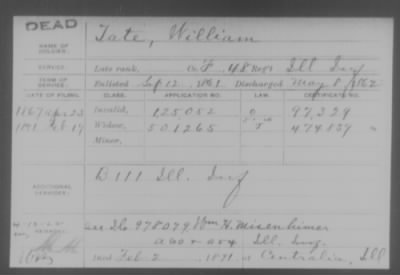 DEAD
NAME OF SOLDIER: Tate, William
SERVICE: Late rank, Co. F, 48 Reg't Ill Inf
TERM OF SERVICE: Enlisted Sep 12, 1861 Discharged May 8, 1862
DATE OF FILING. CLASS. APPLICATION NO. LAW. CERTIFICATE NO.
1867 Apr 23 Invalid, 125,052 97,329
1891 Feb 19 Widow, 501265 474,839
Minor,
ADDITIONAL SERVICES: B 111 Ill. Inf
REMARKS: See 978079 Wm H. Misenheimer
Ill. Inf.
Died Feb 2 1891, at Centralia, Ill